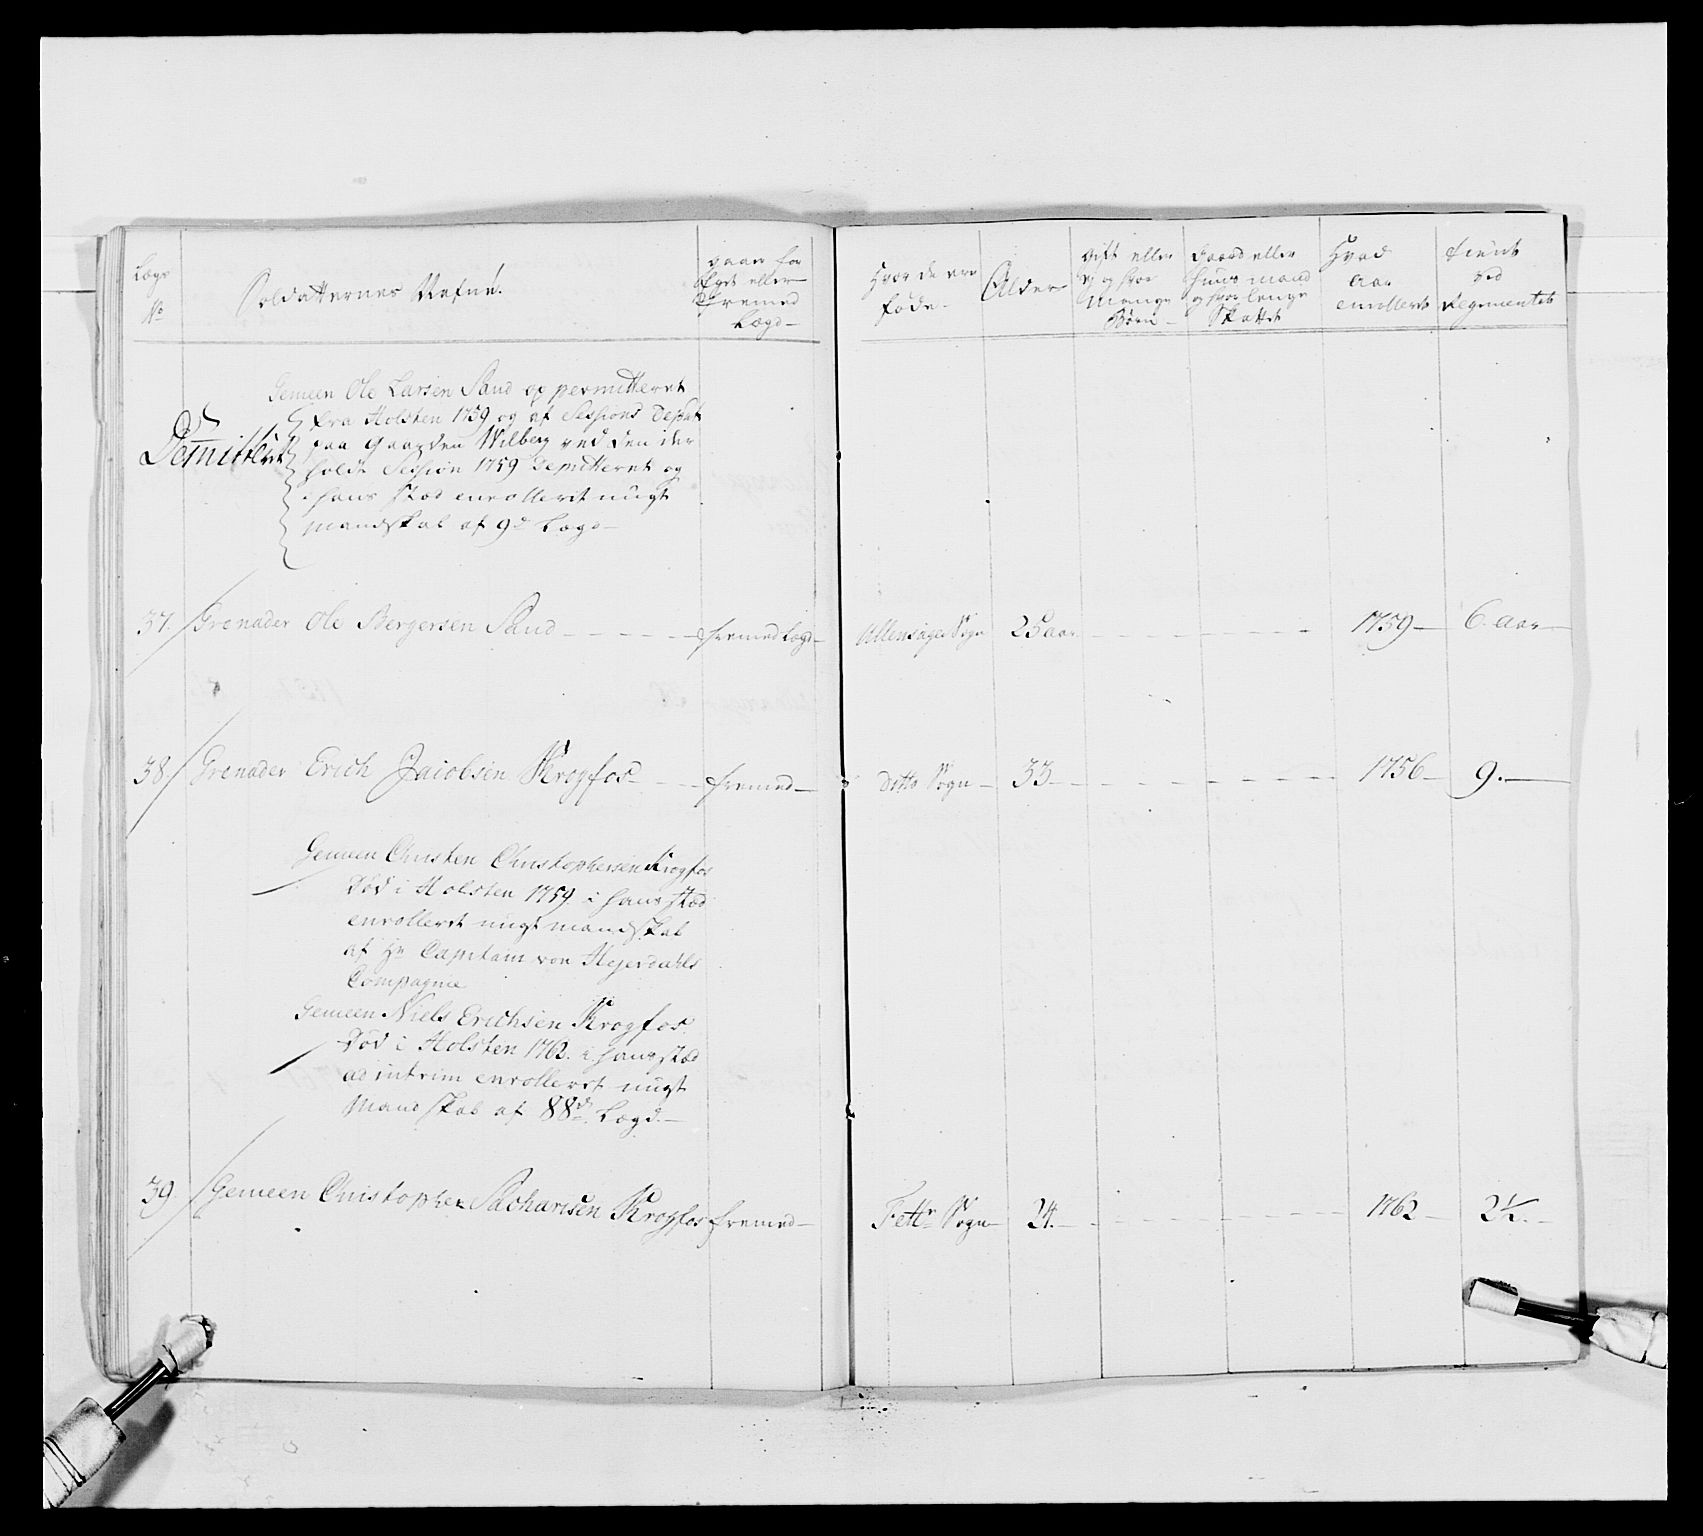 Lægs No
Soldatternes Nefne.
gaaer for Eget eller Fremed Lægd
Hvor de ere føde
Alder
Gift eller ey og hvor mange Børn
Gaard eller huus mand og hvor lenge Skattet
Hvad Aar enrollert
tient ved Regimentet
Gemeen Ole Larsen Sand er permitteret
fra Holsten 1759 og af Sessions Deput
Demitteret
paa Gaarden Wilberg ved den der
holdte Session 1759 demitteret og
i hans stæd enrollerit nügt
mandskab af 9de Lægd
37. Grenader Ole Bergersen Sand fremed Lægd Ullensager Sogn 25 aar 1759 6 Aar
38. Grenader Erich Jacobsen Krogfos fremed ditto Sogn 33 1756 9.
Gemeen Christen Christophersen Krogfos
død i Holsten 1759. i hans stæd
enrolleret nügt mandskab
af Hr Capitain von Hejerdahls
Compagnie
Gemeen Niels Erichsen Krogfos
død i Holsten 1762. i hans stæd
ad intrim enrolleret nügt
Mandskab af 88de Lægd.
39. Gemeen Christopher Sacharisen Krogfos fremed Fettr Sogn 24. 1762 2½.